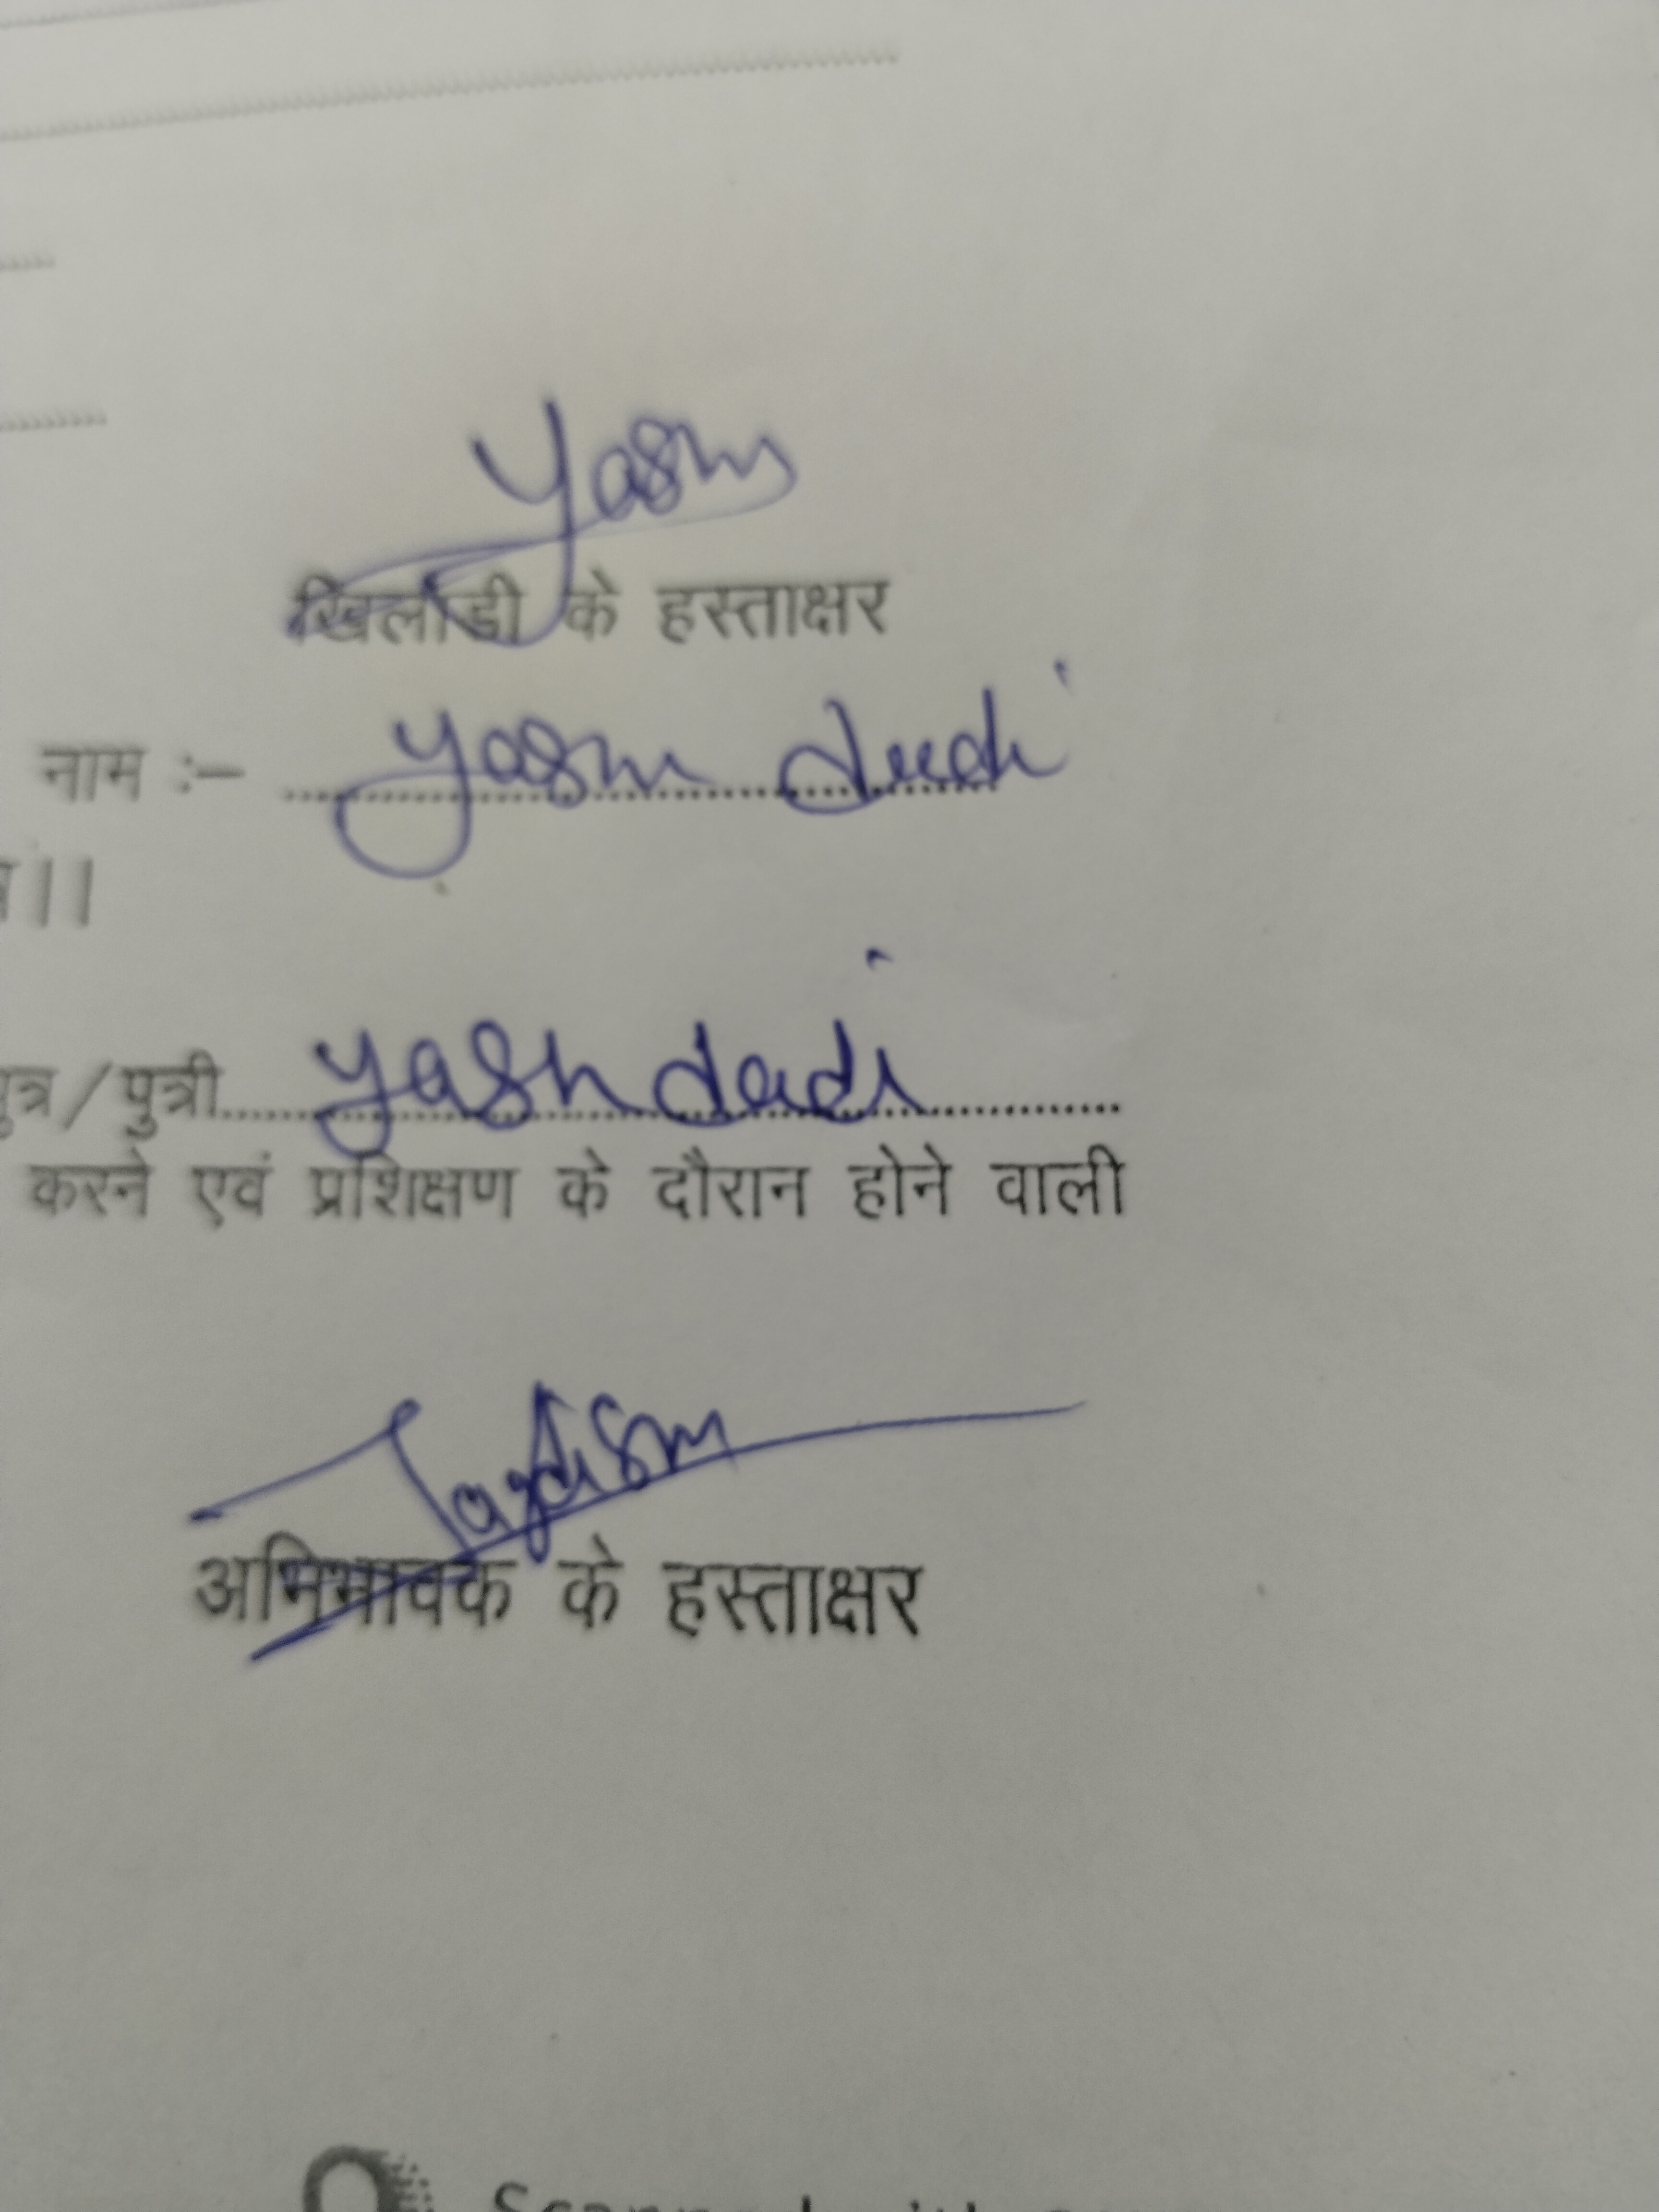 Yash
खिलाडी के हस्ताक्षर
नाम :– Yash dudi
पुत्र/पुत्री yash dudi
करने एवं प्रशिक्षण के दौरान होने वाली
Jagdish
अभिभावक के हस्ताक्षर